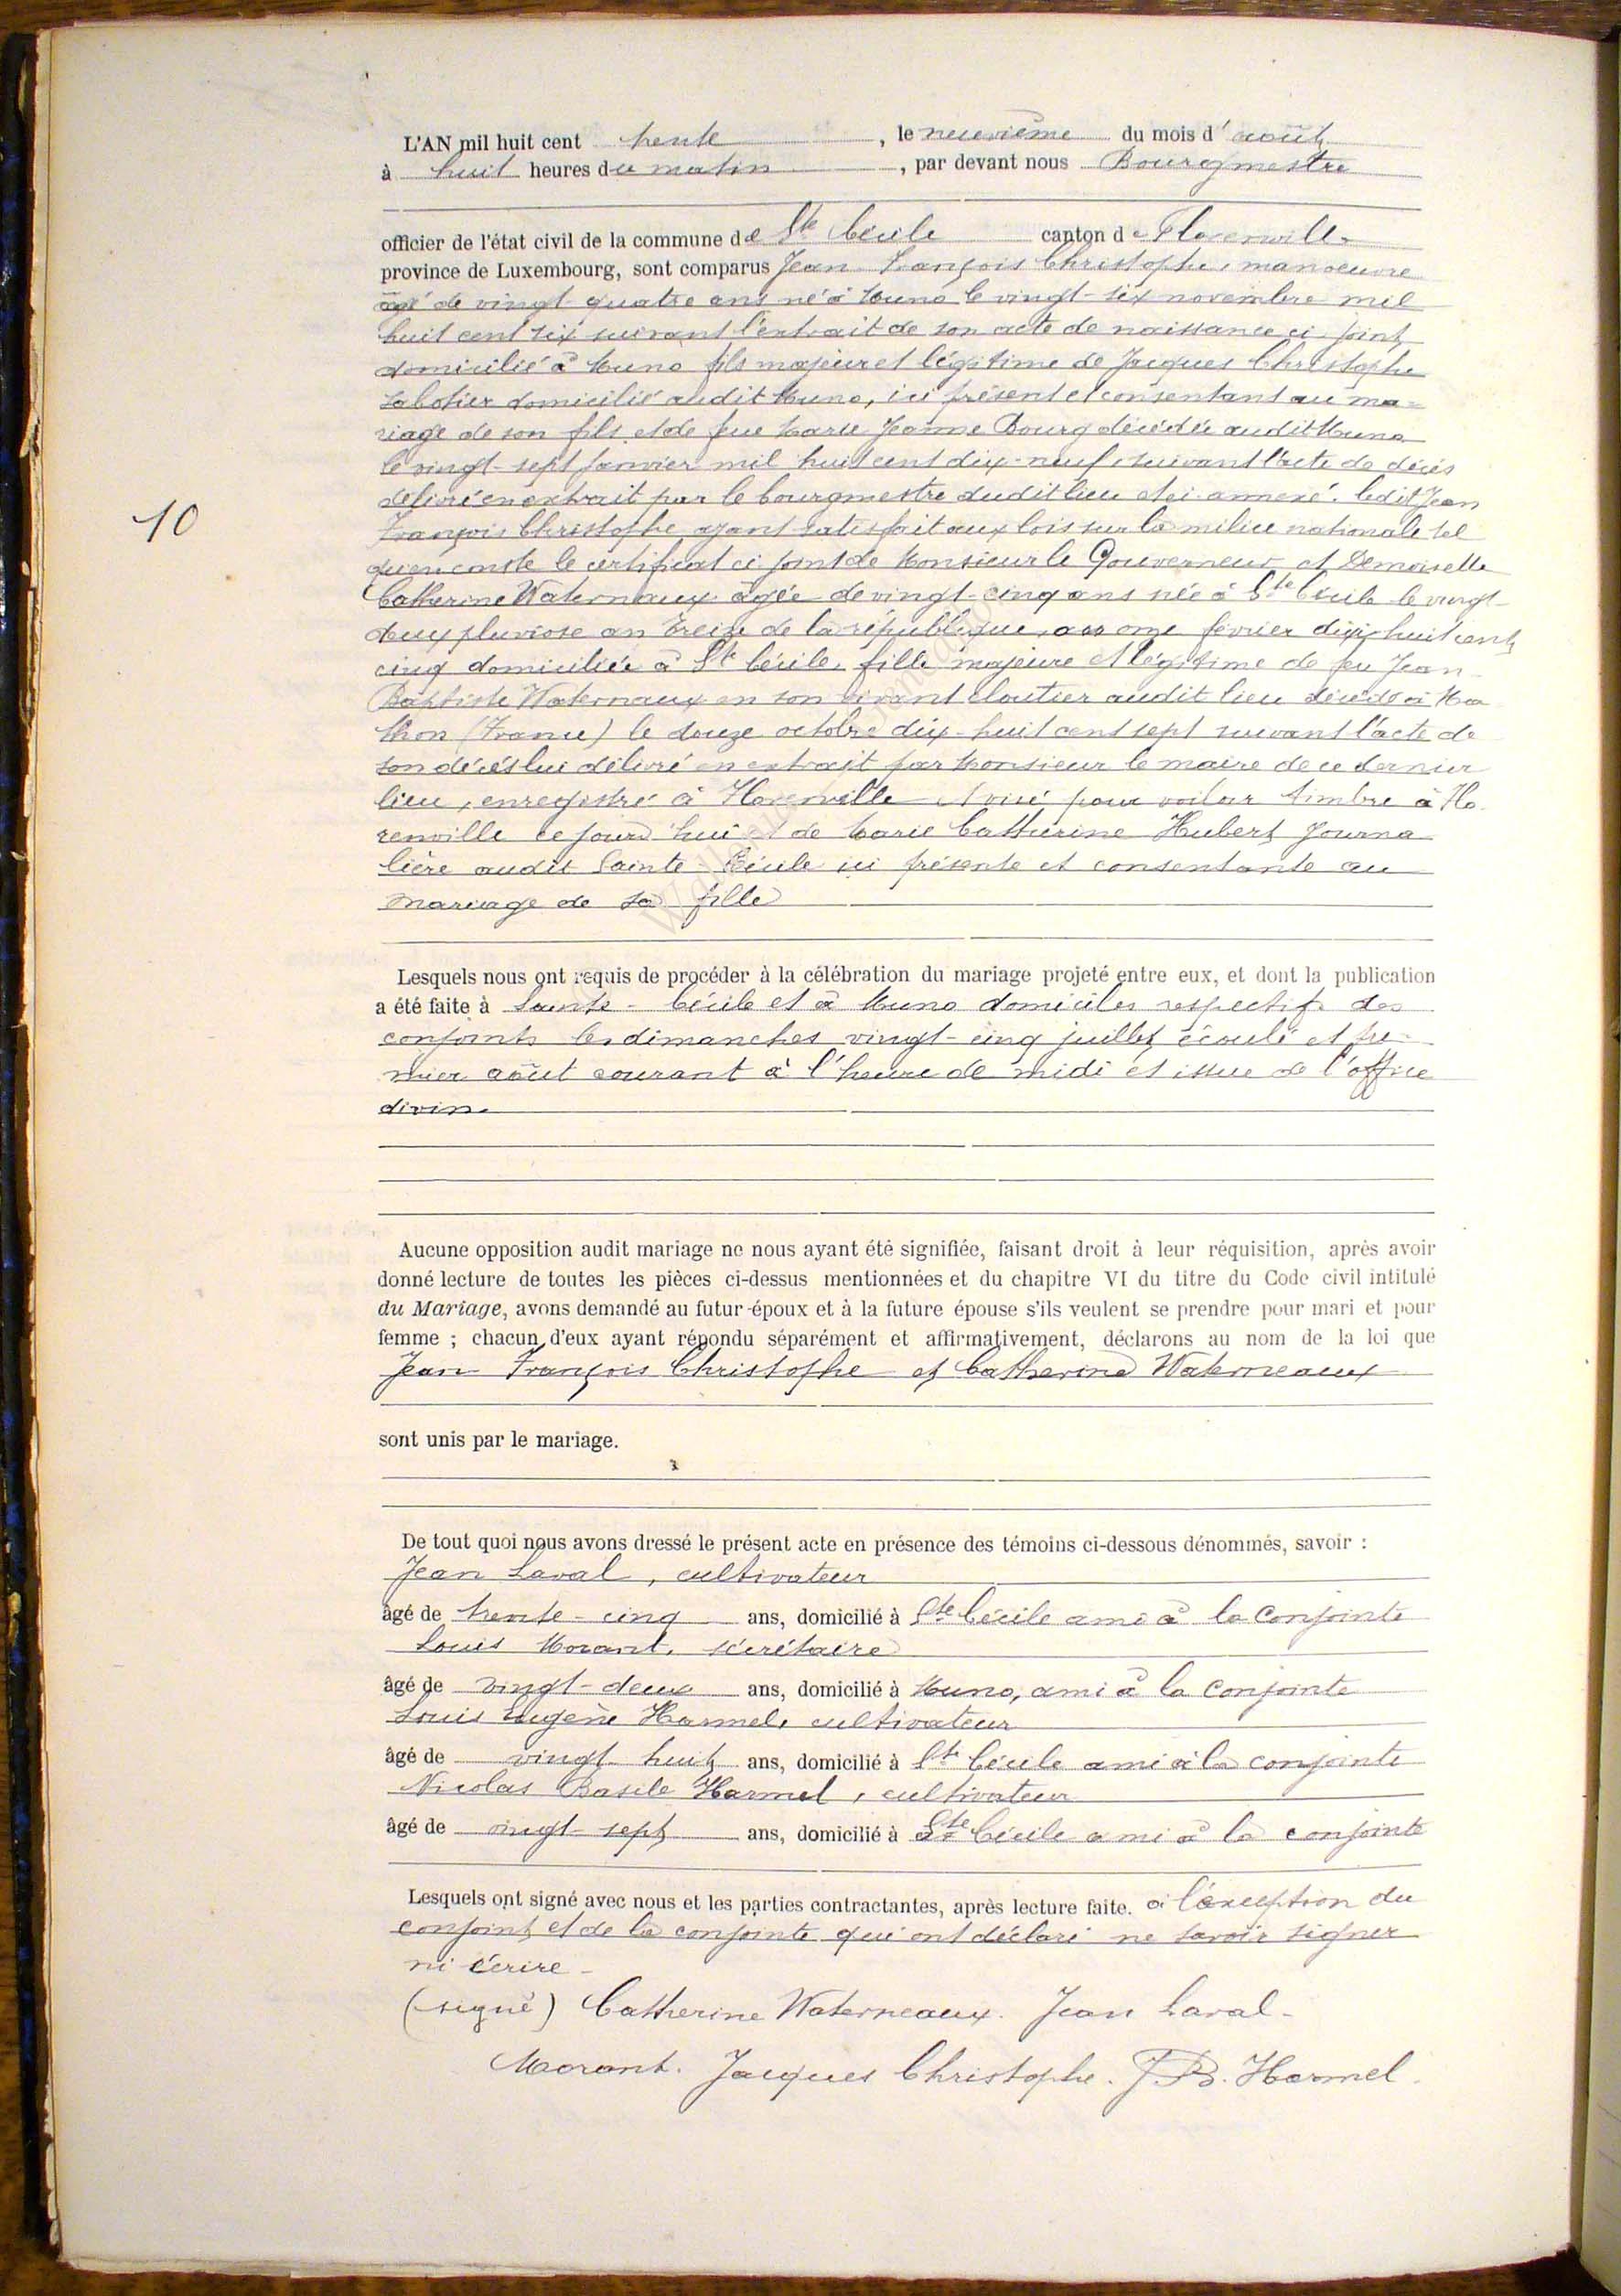 L'AN mil huit cent trente, le neuvième du mois d'août
à huit heures du matin, par devant nous Bourgmestre
officier de l'état civil de la commune de Ste Cécile canton de Florenville
province de Luxembourg, sont comparus Jean François Christophe, manoeuvre
âgé de vingt quatre ans né à Muno le vingt-six novembre mil
huit cent six suivant l'extrait de son acte de naissance ci joint,
domicilié à Muno fils majeur et légitime de Jacques Christophe
sabotier domicilié audit Muno, ici présent et consentant au ma-
riage de son fils et de feue Marie Jeanne Bourg décédée audit Muno
le vingt-sept janvier mil huit cent dix-neuf, suivant l'acte de décès
délivré en extrait par le bourgmestre dudit lieu et ci-annexé. Ledit Jean
10
François Christophe ayant satisfait aux lois sur la milice nationale tel
qu'en conste le certificat ci joint de Monsieur le Gouverneur et Demoiselle
Catherine Waternaux âgée de vingt-cinq ans née à Ste Cécile le vingt-
deux pluviose an treize de la république, ou onze février dix-huit cent
cinq domiciliée à Ste Cécile, fille majeure et légitime de feu Jean
Baptiste Waternaux en son vivant cloutier audit lieu décédé à Ma
thon (France) le douze octobre dix-huit cent sept suivant l'acte de
son décès lui délivré en extrait par Monsieur le maire de ce dernier
lieu, enregistré à Florenville et visé pour valoir timbre à Flo
renville ce jourd'hui et de Marie Catherine Hubert journa
lière audit Sainte Cécile ici présente et consentante au
mariage de sa fille
Lesquels nous ont requis de procéder à la célébration du mariage projeté entre eux, et dont la publication
a été faite à Sainte-Cécile et à Muno domiciles respectifs des
conjoints les dimanches vingt-cinq juillet écoulé et pre-
mier août courant à l'heure de midi et issue de l'office
divin.
Aucune opposition audit mariage ne nous ayant été signifiée, faisant droit à leur réquisition, après avoir
donné lecture de toutes les pièces ci-dessus mentionnées et du chapitre VI du titre du Code civil intitulé
du Mariage, avons demandé au futur époux et à la future épouse s'ils veulent se prendre pour mari et pour
femme ; chacun d'eux ayant répondu séparément et affirmativement, déclarons au nom de la loi que
Jean François Christophe et Catherine Waterneaux
sont unis par le mariage.
De tout quoi nous avons dressé le présent acte en présence des témoins ci-dessous dénommés, savoir :
Jean Laval, cultivateur
âgé de trente-cinq ans, domicilié à Ste Cécile ami à la conjointe
Louis Morant, sécrétaire
âgé de vingt-deux ans, domicilié à Muno, ami à la conjointe
Louis Eugène Harmel, cultivateur
âgé de vingt huit ans, domicilié à Ste Cécile ami à la conjointe
Nicolas Basile Harmel, cultivateur
âgé de vingt-sept ans, domicilié à Ste Cécile ami à la conjointe
Lesquels ont signé avec nous et les parties contractantes, après lecture faite. à l'exception du
conjoint et de la conjointe qui ont déclaré ne savoir signer
ni écrire -
(signé) Catherine Waterneaux. Jean Laval-
Morant. Jacques Christophe. J.B. Harmel.